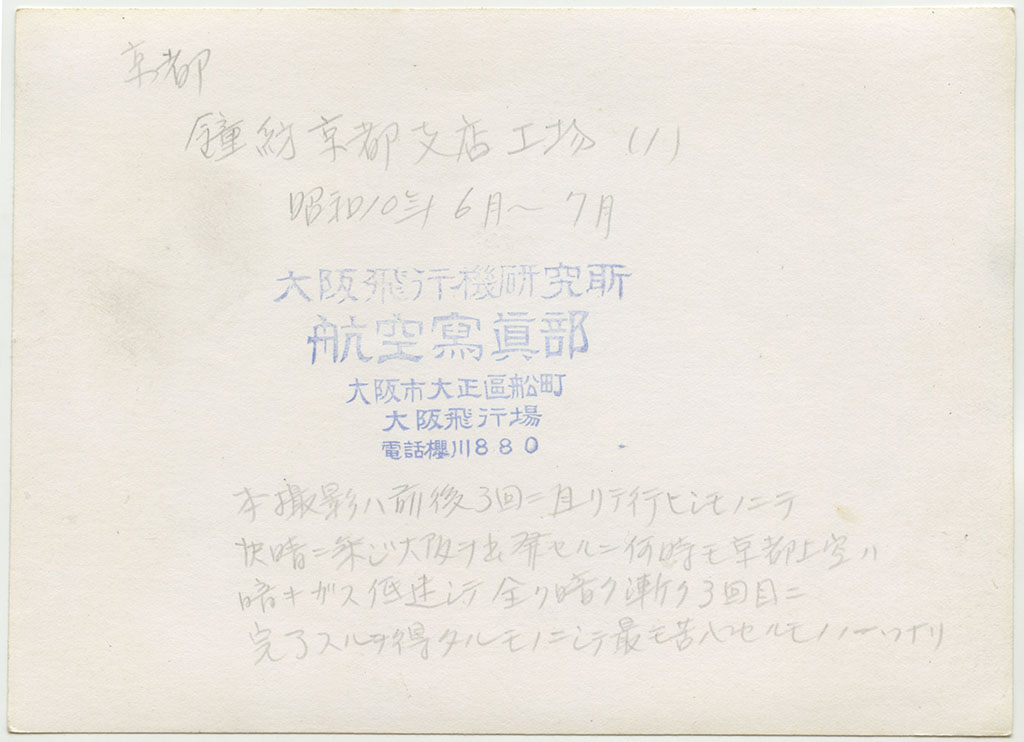 京都
鐘紡京都支店工場 (1)
昭和10年6月〜7月
大阪飛行機研究所
航空寫眞部
大阪市大正區船町
大阪飛行場
電話櫻川880
本撮影ハ前後3回ニ亘リテ行ヒシモノニテ
快晴ニ乗ジ大阪ヲ出発セルニ何時モ京都上空ハ
暗キガス低迷シテ全ク暗ク漸ク3回目ニ
完了スルヲ得タルモノニシテ最モ苦心セルモノノ一ツナリ